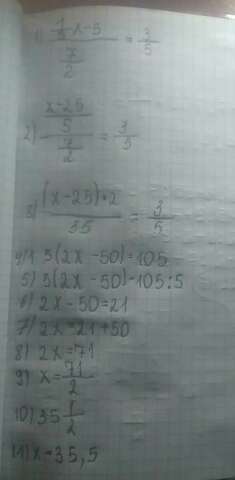 1) (1/5 x-5)/(7/2) = 3/5
2) ((x-25)/5)/(7/2) = 3/5
3) ((x-25)•2)/35 = 3/5
4) 5(2x-50)=105
5) 5(2x-50)=105:5
6) 2x-50=21
7) 2x=21+50
8) 2x=71
9) x=71/2
10) 35 1/2
11) x=35,5